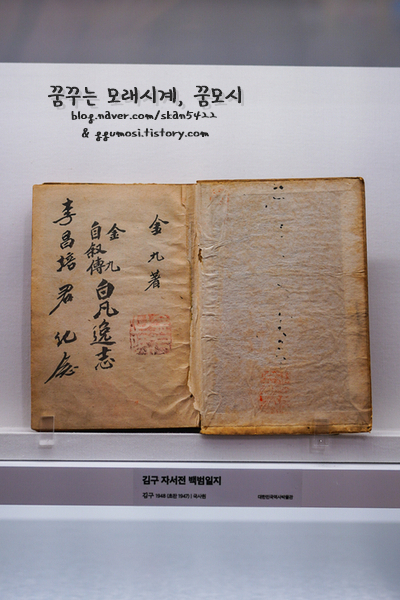 꿈꾸는 모래시계, 꿈모시
blog.naver.com/skan5422
& ggumosi.tistory.com
金九著
金九
自叙傳
白凡逸志
李昌培君 紀念
김구 자서전 백범일지
김구 1948 (초판 1947) | 국사원
대한민국역사박물관